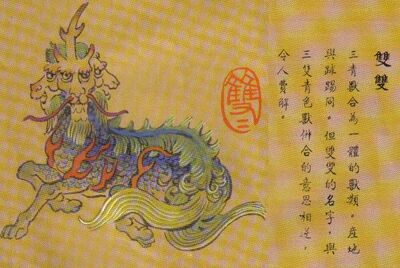 雙雙
三青獸合為一體的獸類。產地
與跊踢同。但雙雙的名字,與
三隻青色獸併合的意思相逆,
令人費解。
雙二